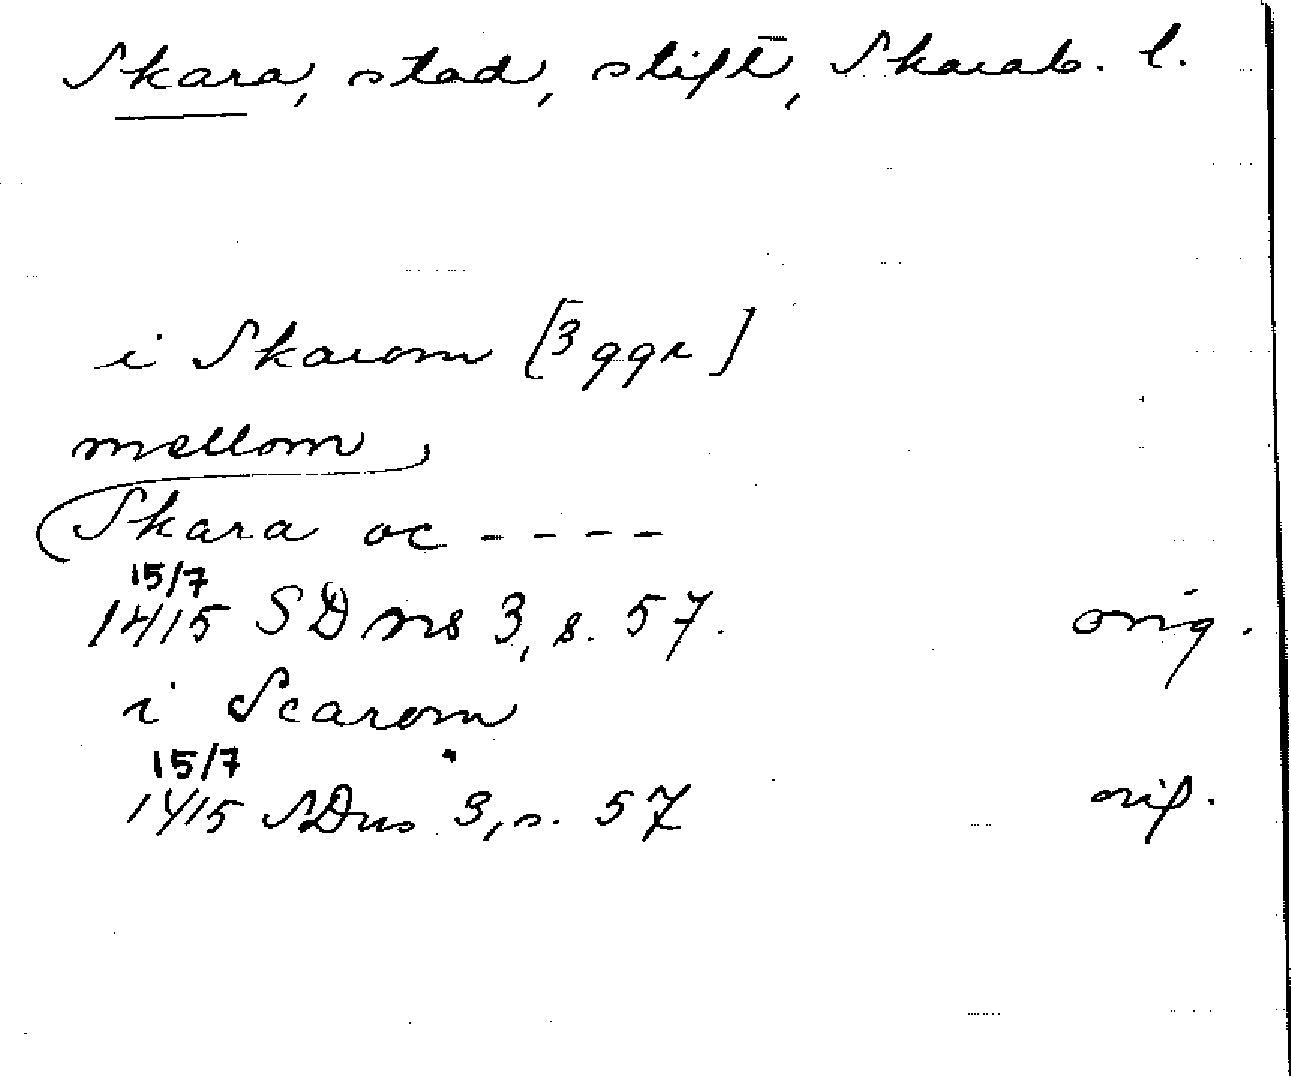 Skara, stad, stift, Skarab. l.
i Skarom [3 ggr]
mellom
Skara oc - - - -
15/7
1415 SD ns 3, s. 57. orig.
i Scarom
15/7
1415 SDns 3, s. 57 orig.